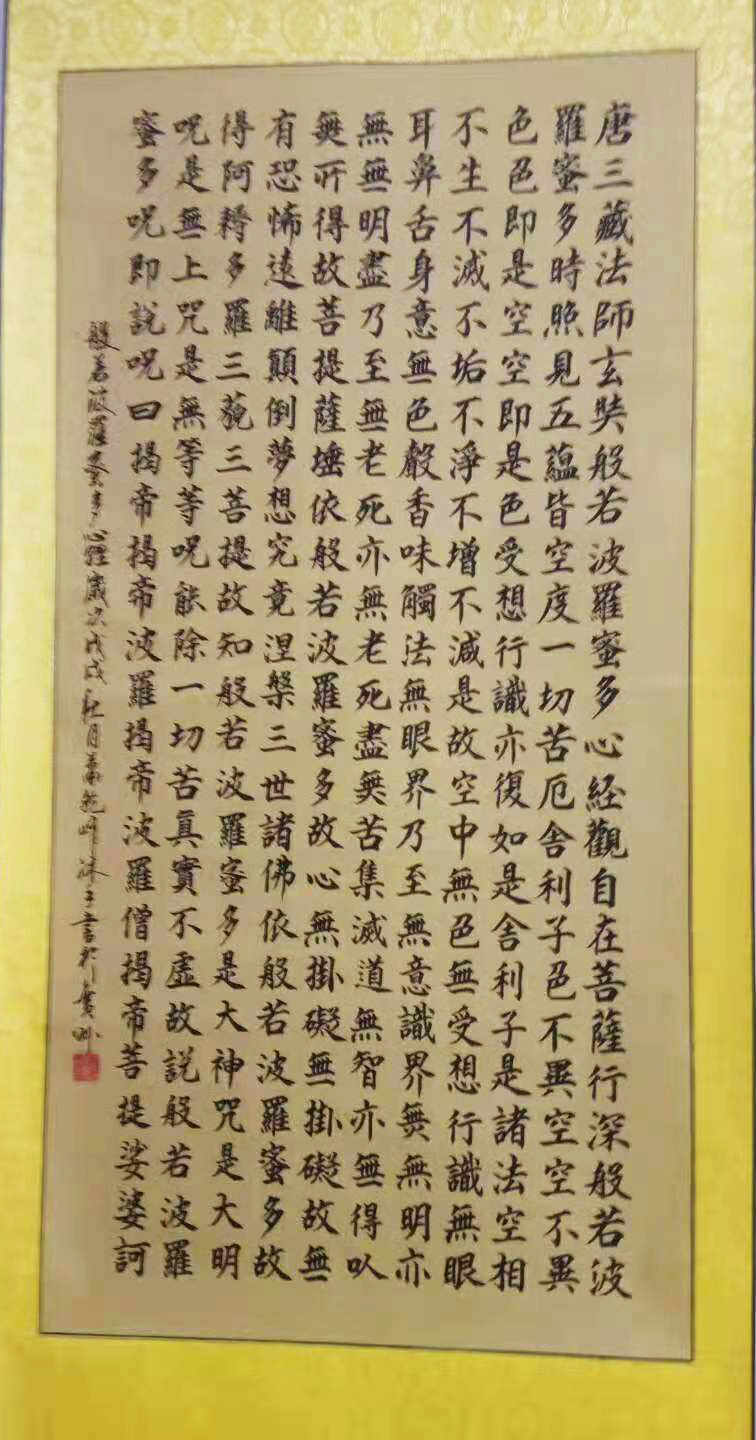 唐三藏法師玄奘般若波羅蜜多心経觀自在菩薩行深般若波
羅蜜多時照見五蘊皆空度一切苦厄舍利子色不異空空不異
色色即是空空即是色受想行識亦復如是舍利子是諸法空相
不生不滅不垢不淨不增不減是故空中無色無受想行識無眼
耳鼻舌身意無色聲香味觸法無眼界乃至無意識界無無明亦
無無明盡乃至無老死亦無老死盡無苦集滅道無智亦無得以
無所得故菩提薩埵依般若波羅蜜多故心無掛礙無掛礙故無
有恐怖遠離顛倒夢想究竟涅槃三世諸佛依般若波羅蜜多故
得阿耨多羅三藐三菩提故知般若波羅蜜多是大神咒是大明
呪是無上咒是無等等呪能除一切苦真實不虛故説般若波羅
蜜多呪即説呪曰揭帝揭帝波羅揭帝波羅僧揭帝菩提娑婆訶
般若波羅蜜多心經歲次戊戌秋月書於